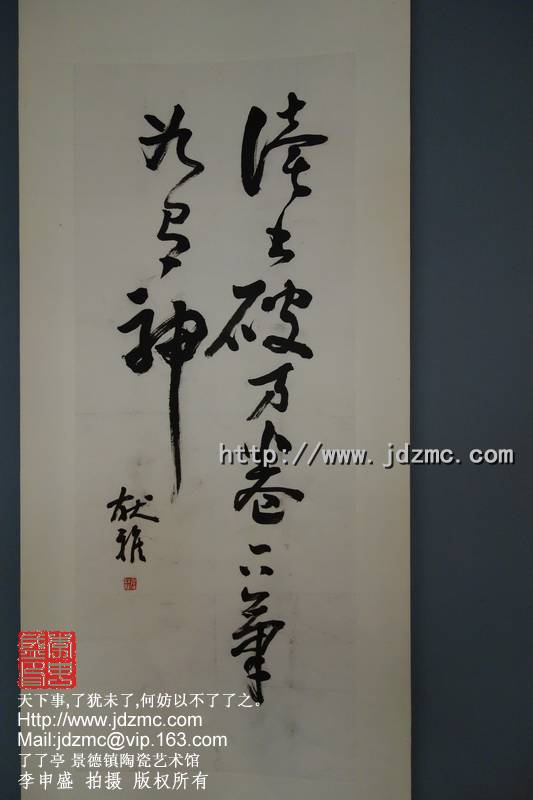 讀书破万卷下筆
如有神
http://www.jdzmc.com
天下事,了犹未了,何妨以不了了之。
Http://www.jdzmc.com
Mail:jdzmc@vip.163.com
了了亭 景德镇陶瓷艺术馆
李申盛 拍摄 版权所有